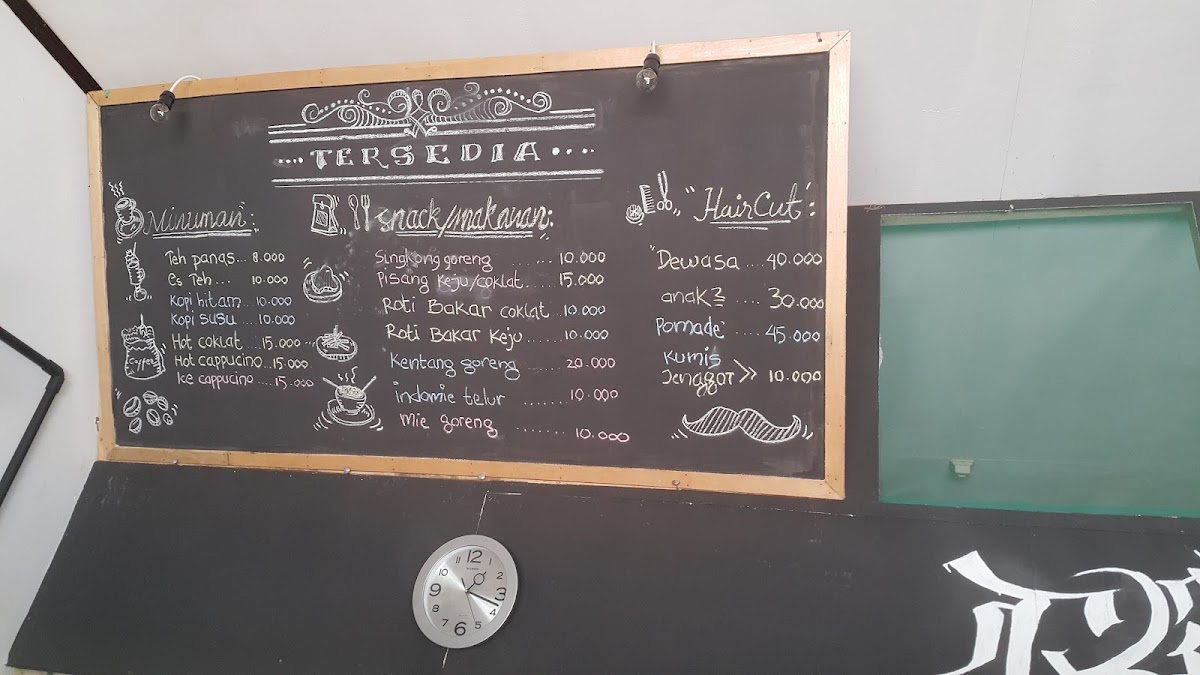 .... TERSEDIA ....
Minuman :
Teh panas... 8.000
Es Teh... 10.000
Kopi hitam.. 10.000
Kopi susu .... 10.000
Hot coklat ....15.000
Hot cappucino...15.000
Ice cappucino....15.000
Snack/makanan:
Singkong goreng ..... 10.000
Pisang Keju/coklat..... 15.000
Roti Bakar coklat ..10.000
Roti Bakar Keju ...... 10.000
Kentang goreng ...... 20.000
indomie telur ....... 10.000
Mie goreng ........ 10.000
"HairCut":
Dewasa ....40.000
anak2 .... 30.000
Pomade .... 45.000
Kumis
Jenggot >> 10.000
Coffee
12
1
2
3
4
5
6
7
8
9
10
11